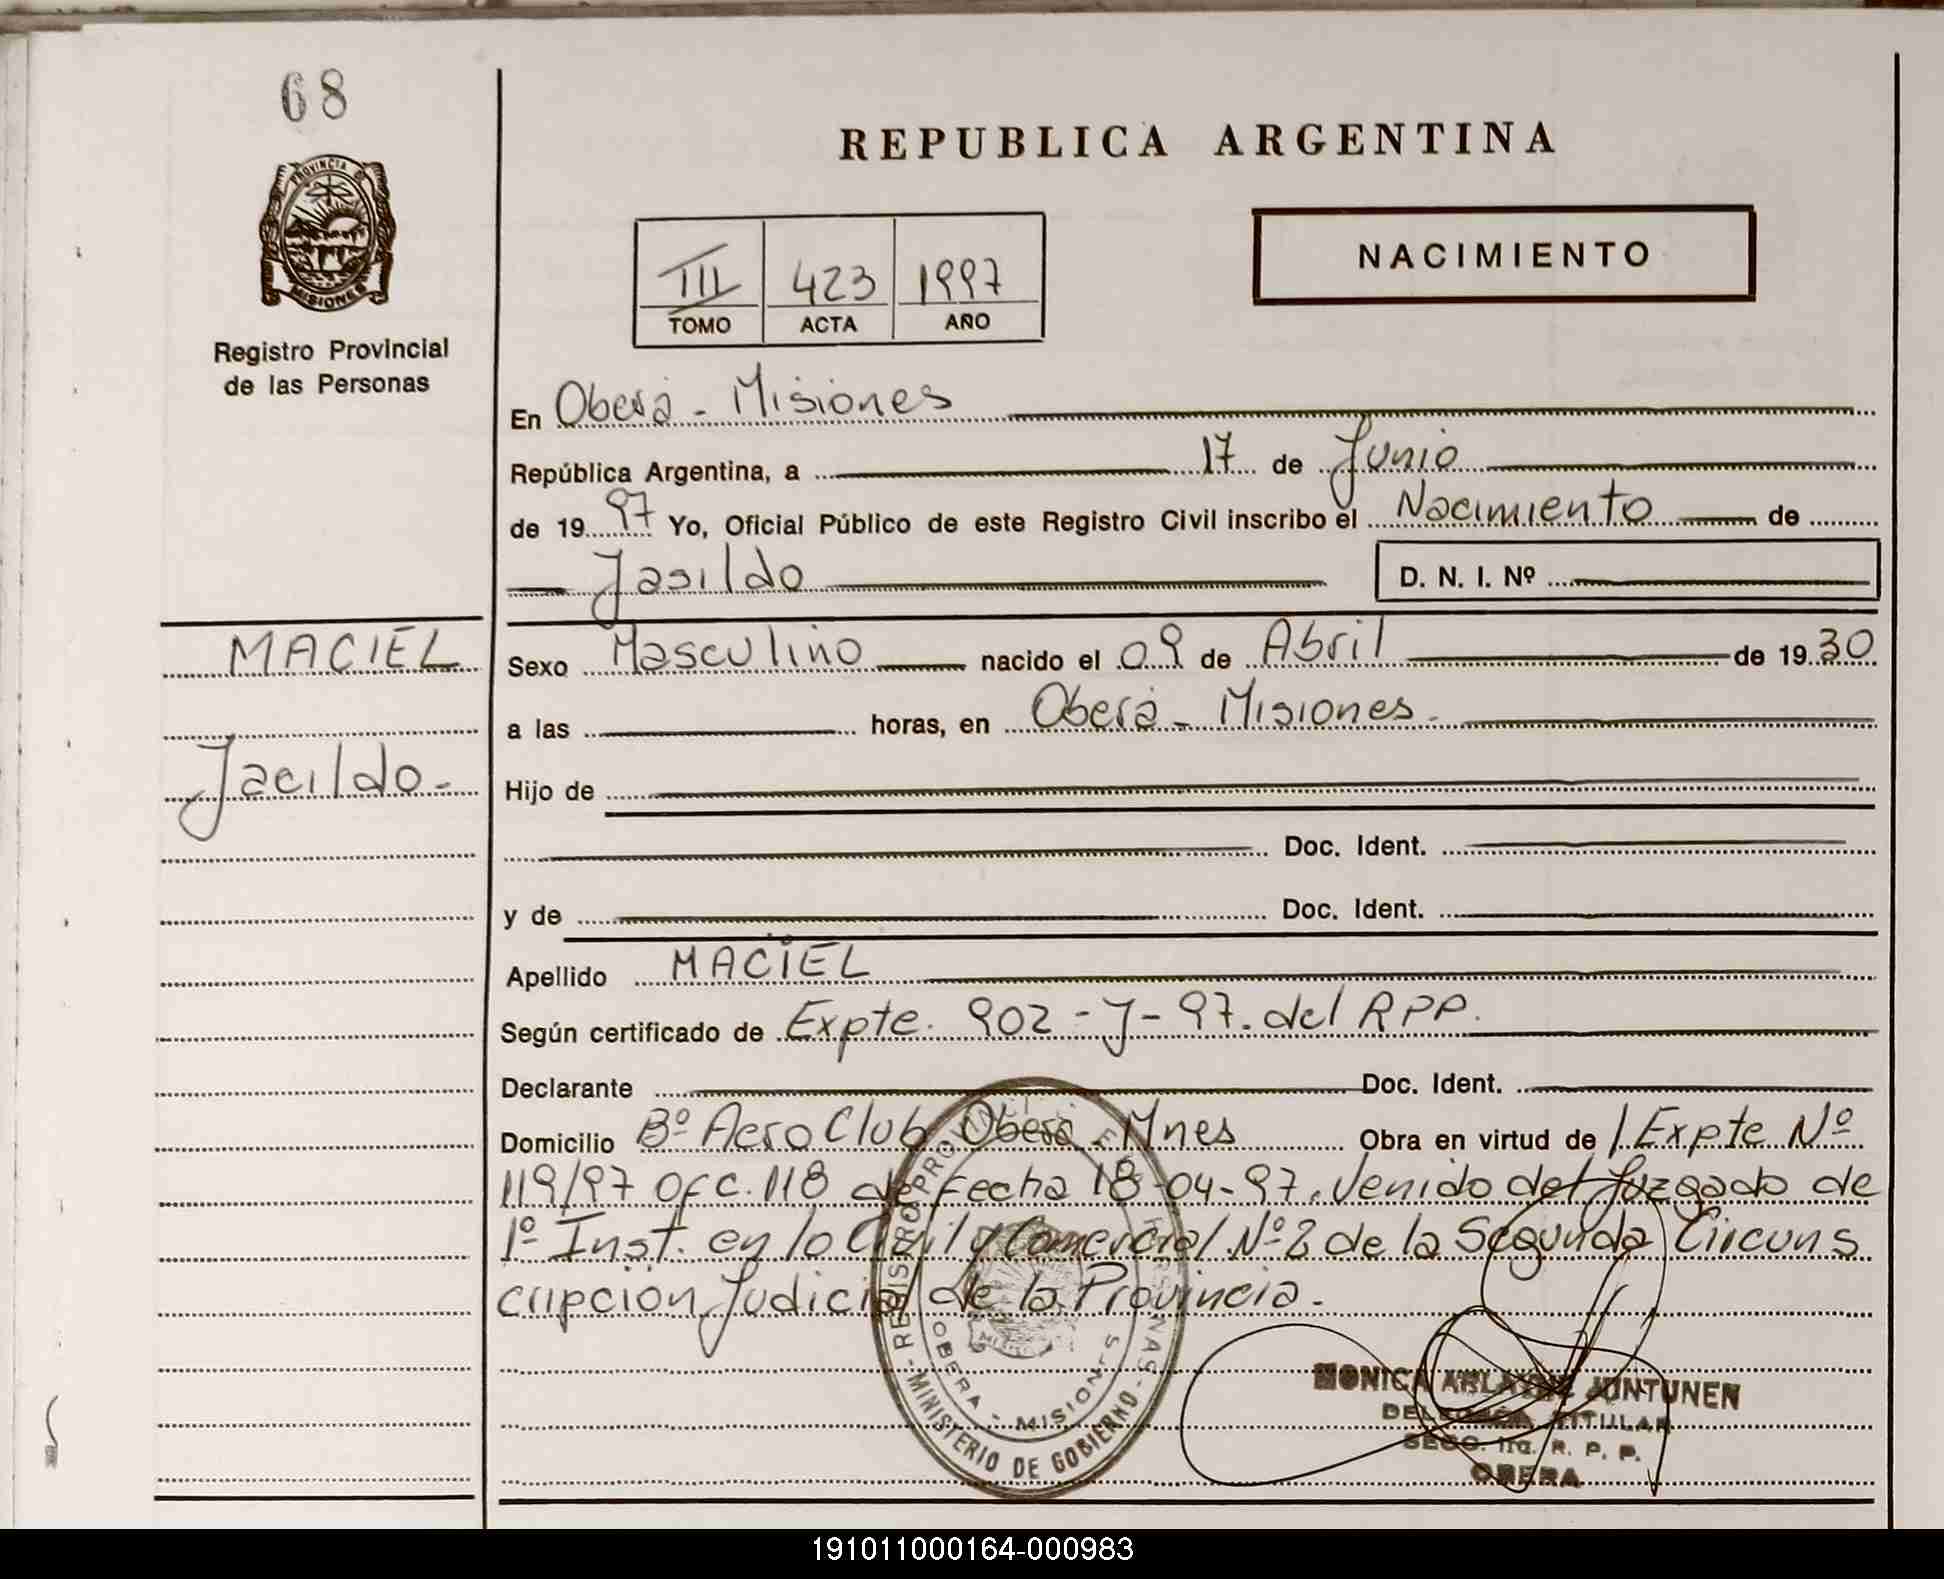 68
PROVINCIA DE
MISIONES
Registro Provincial
de las Personas
REPUBLICA ARGENTINA
III 423 1997
TOMO ACTA AÑO
NACIMIENTO
En Oberá - Misiones
República Argentina, a 17 de Junio
de 19 97 Yo, Oficial Público de este Registro Civil inscribo el Nacimiento de
Jasildo D. N. I. Nº
MACIEL
Jacildo-
Sexo Masculino nacido el 09 de Abril de 19 30
a las horas, en Oberá - Misiones.
Hijo de
Doc. Ident.
y de Doc. Ident.
Apellido MACIEL
Según certificado de Expte. 902-J-97. del RPP.
Declarante Doc. Ident.
Domicilio Bº Aero Club Oberá - Mnes Obra en virtud de Expte Nº
119/97 Ofc. 118 de Fecha 18-04-97. Venido del Juzgado de
1º Inst. en lo Civil y Comercial Nº 2 de la Segunda Circuns
cripción Judicial de la Provincia.
REGISTRO PROVINCIAL DE LAS PERSONAS - MINISTERIO DE GOBIERNO -
OBERA - MISIONES
MONICA JUNTUNEN
TITULAR
R. P. P.
OBERA
191011000164-000983